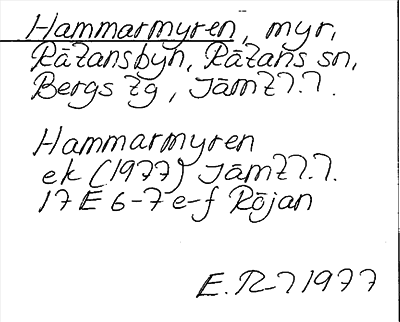 Hammarmyren, myr,
Rätansbyn, Rätans sn,
Bergs tg, Jämtl.
Hammarmyren
ek (1977) Jämtl.
17 E 6-7 e-f Röjan
1977